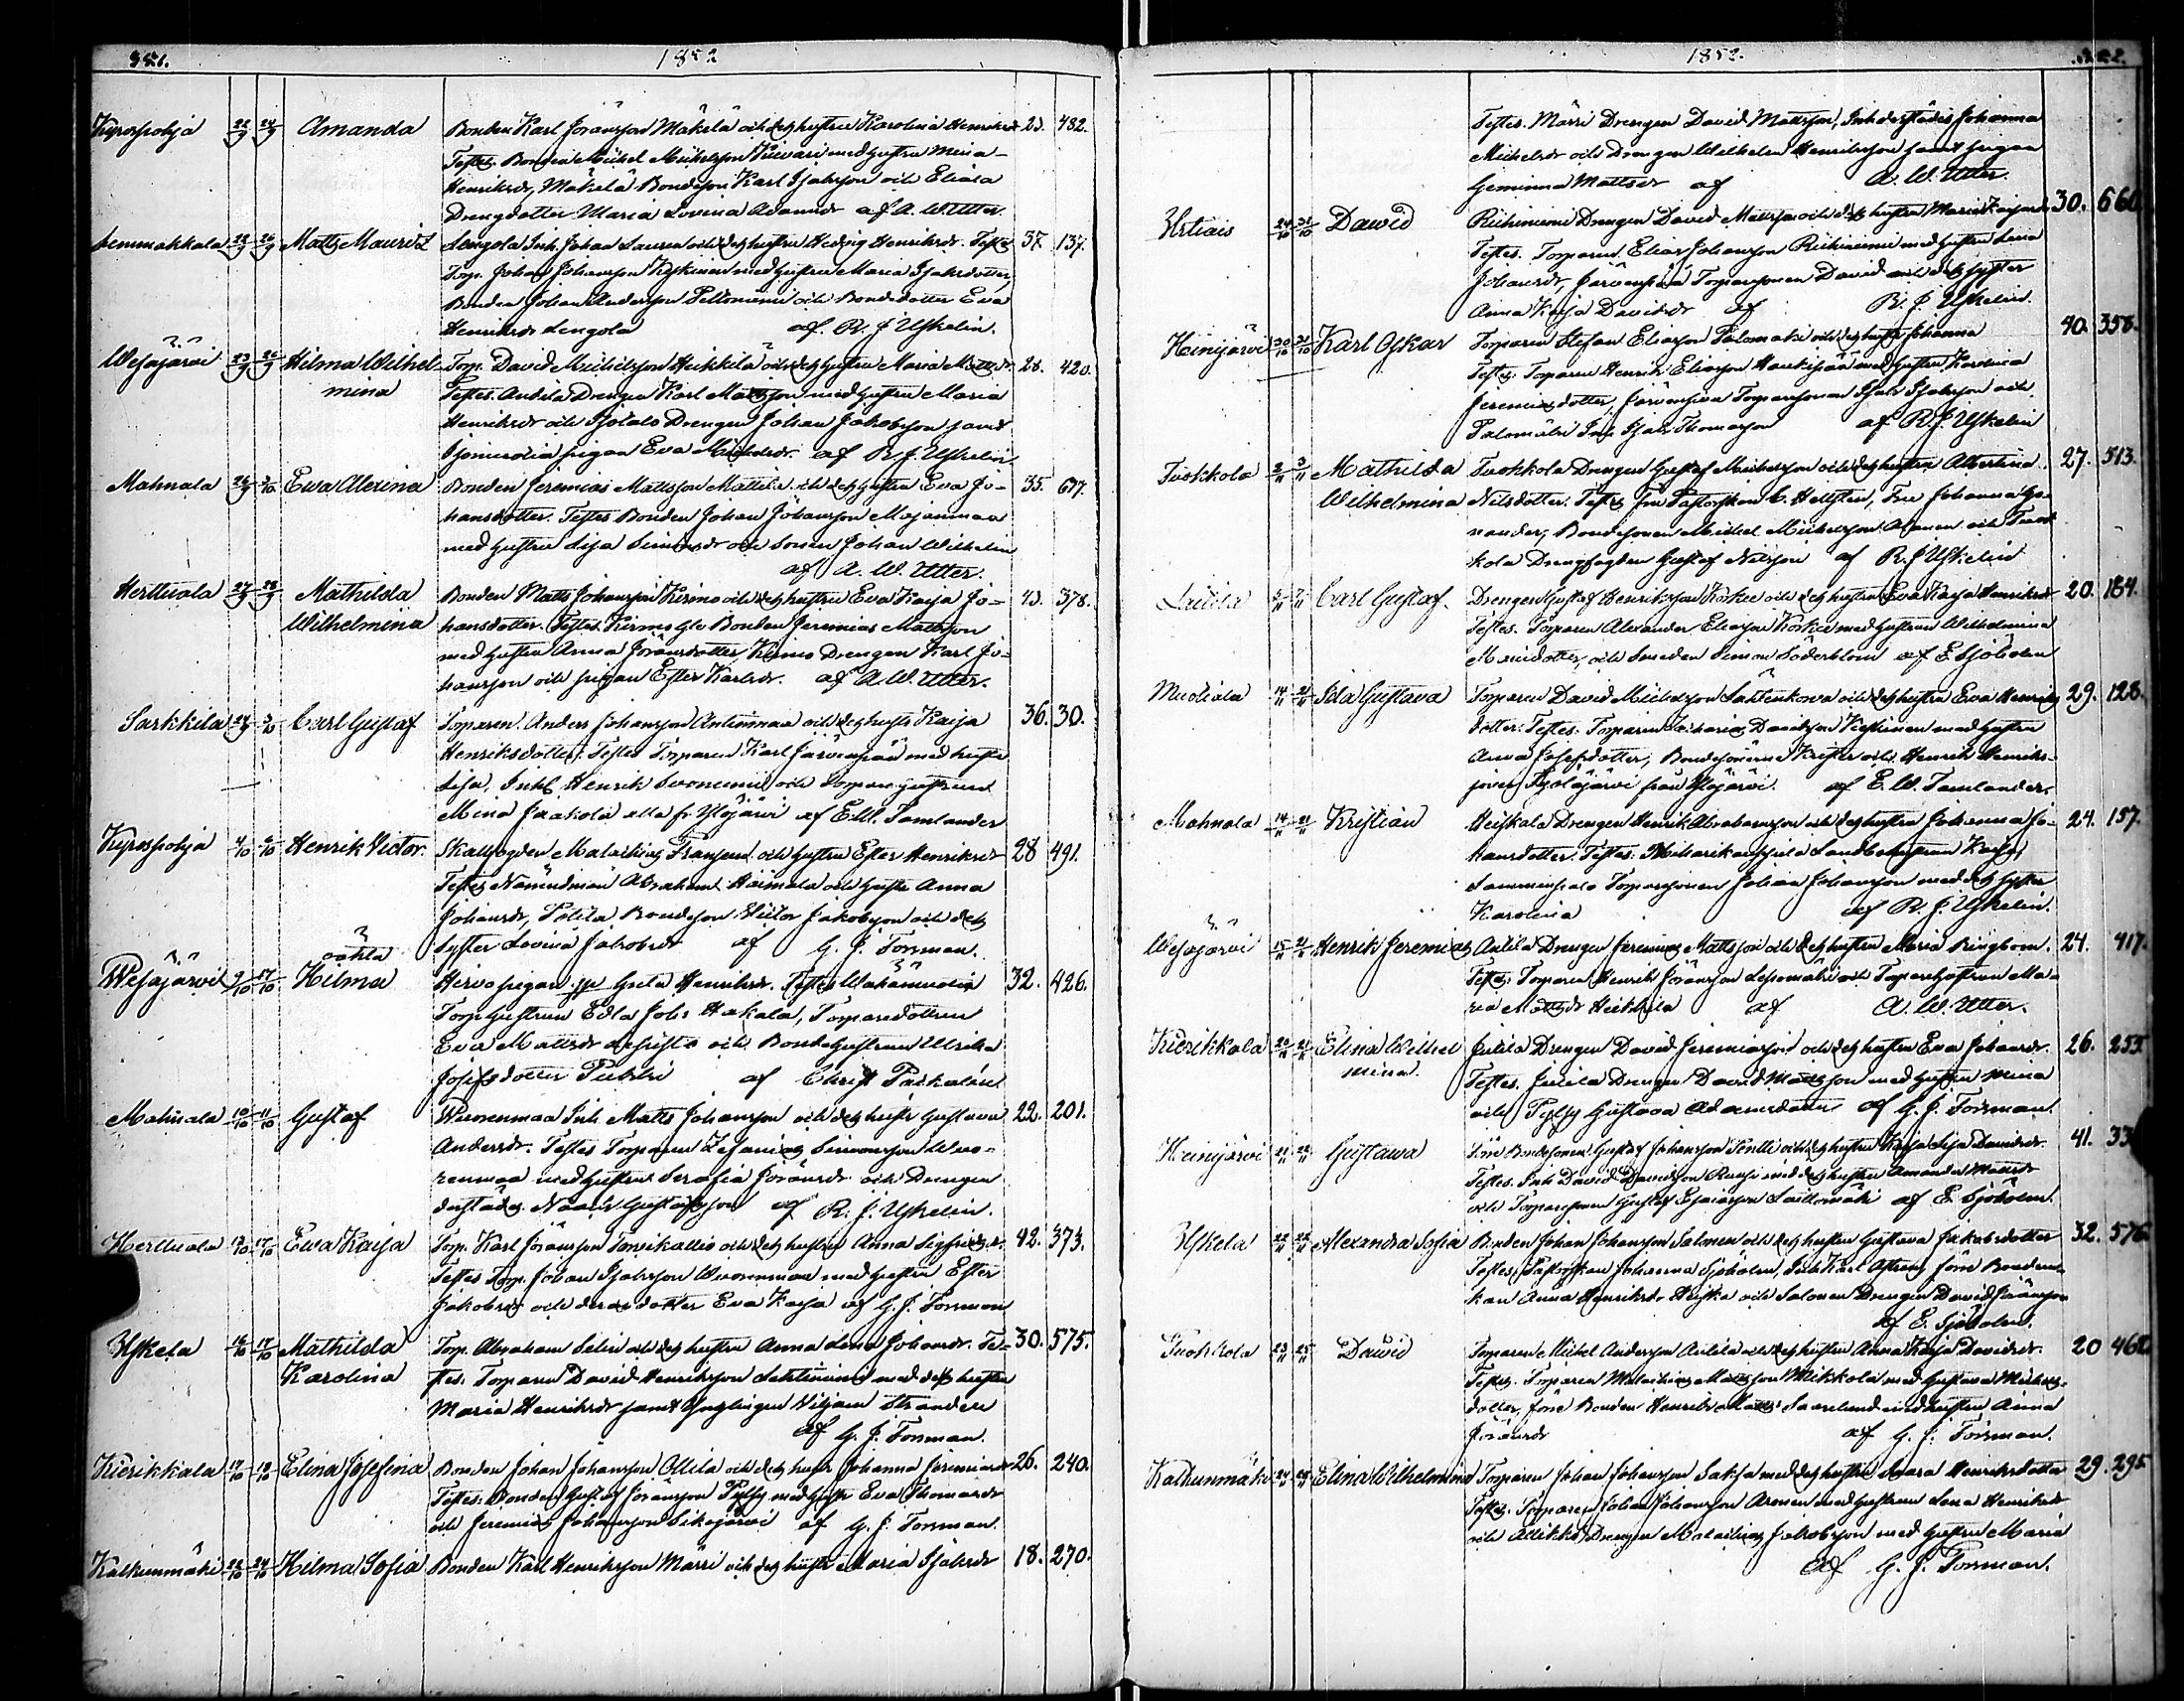 321. 1852
Kyröspohja 22/9 24/9 Amanda Bonden Karl Göransson Mäkelä och dess hustru Karolina Henriksdr 23. 482.
Testes Bonden Michel Michelsson med hustru Mina
Henriksdr, Mäkelä Bondeson Karl Isaksson och
Drengdotter Maria Lovina Adamsdr af A. W. Utter.
Matts Mauritz Lengola Inh. Johan Lauren och dess hustru Hedvig Henriksdr. Testes 37. 137.
Torp. Johan Johansson Keskinen med hustru Maria Isaksdotter,
Bonden Johan Andersson Peltoniemi och Bondedotter Eva
Henriksdr Lengola af R. J. Uskelin.
Wesajärvi 23/9 26/9 Hilma Wilhel- Torp. David Michelsson Heikkilä och dess hustru Maria Mattsdr 28. 420.
mina Testes. Anttila Drengen Karl Mattsson med hustru Maria
Henriksdr och Isotalo Drengen Johan Jakobsson samt
pigan Eva Michelsdr. af R. J. Uskelin
Mahnala 26/9 3/10 Ewa Alexina Bonden Jeremias Mattsson Mattila och dess hustru Eva Jo- 35. 677.
hansdotter. Testes Bonden Johan Johansson Majanmaa
med hustru Lisa Simonsdr och Sonen Johan Wilhelm
af A. W. Utter.
Herttuala 27/9 28/9 Mathilda Bonden Matts Johansson Kirmo och dess hustru Eva Kaisa Jo- 43. 378.
Wilhelmina hansdotter. Testes Kirmo Bonden Jeremias Mattsson
med hustru Anna Göransdotter, Kirmo Drengen Karl Jo-
hansson och pigan Ester Karlsdr. af A. W. Utter.
Sarkkila 27/9 3/10 Carl Gustaf Torparen Anders Johansson Antinmaa och dess hustru Kaisa 36. 30.
Henriksdotter. Testes Torparen Karl Järvenpää med hustru
Lisa, Inh. Henrik och Torpare hustrun
Mina Jaakola alla fr. Ylöjärvi af E. W. Tamlander
Kyröspohja 4/10 6/10 Henrik Victor. Skallfogden Malachias Fransen och hustru Ester Henriksdr 28 491.
Testes Nämndman Abraham Häimälä och hustru Anna
Johansdr, Bondeson Victor Jakobsson och dess
syster Lovisa Jakobsdr af G. J. Forsman.
oäkta
Wesajärvi 9/10 17/10 Hilma Hirvo pigan Greta Henriksdr. Testes 32. 426.
Torp. hustrun Edla Joh: Hakala, Torparedottren
Eva Mattsdr och Bondehustrun Ulrika
Josefsdotter Pukki af Christ Paikalén
Mahnala 10/10 11/10 Gustaf Wuorenmaa Inh. Matts Johansson och dess hustru Gustava 22. 201.
Andersdr. Testes Torparen Zefanias Simonsson Wuo-
renmaa med hustru Serafia Göransdr och Drengen
dersstädes Gustafsson af R. J. Uskelin.
Herttuala 17/10 Ewa Kaisa Torp. Karl Göransson Tonsikallio och dess hustru Anna Sigfridsdr. 42. 373.
Testes Torp. Johan Isaksson Wuorenmaa med hustru Ester
Jakobsdr och deras dotter Eva Kaisa af G. J. Forsman
Uskela 16/10 17/10 Mathilda Torp. Abraham Selin och dess hustru Anna Lena Johansdr. Tes- 30. 575.
Karolina tes. Torparen David Henriksson med dess hustru
Maria Henriksdr samt Ynglingen Viljam Strandén
af G. J. Forsman.
Kierikkala 17/10 18/10 Elina Josefina Bonden Johan Johansson Ollila och dess hustru Johanna Jeremiasdr 26. 240.
Testes. Bonden Gustaf Göransson Pylsy med hustru Eva Thomasdr
och Jeremias Johansson Sikojärvi af G. J. Forsman.
Kalkunmäki 22/10 24/10 Hilma Sofia Bonden Karl Henriksson Märri och dess hustru Maria Isaksdr 18. 270.
1852. 322.
Testes. Märri Drengen David Mattsson, Inh. derstädes Johanna
Michelsdr och Drengen Wilhelm Henriksson samt pigan
Gemima Mattsdr af A. W. Utter.
24/10 31/10 Dawid Riihiniemi Drengen David Mattsson och dess hustru Maria 30. 660
Testes. Torparen Elias Johansson Riihiniemi med hustru Lena
Johansdr, Järvenpää Torparsonen David och dess syster
Anna Kaisa Davidsdr af R. J. Uskelin.
Heinijärvi 30/10 31/10 Karl Oskar Torparen Stefan Eliasson Palomäki och dess hustru Johanna 40. 358.
Testes. Torparen Henrik Eliasson Haukijää med hustru Karolina
Jeremiasdotter, Järvenpää Torparesonen Isak Isaksson och
Palomäki Inh. Isak Thomasson af R. J. Uskelin
Tuokkola 2/11 3/11 Mathilda Tuokkola Drengen Gustaf Michelsson och dess hustru Albertina 27. 513.
Wilhelmina Nilsdotter. Testes Fru Pastorskan C. Hellstén, Fru Johanna Go-
nander, Bondesonen Michel Michelsson och Tuok-
kola Drengfogden Gustaf Nilsson af R. J. Uskelin
Laitila 5/11 7/11 Carl Gustaf. Drengen Gustaf Henriksson Koskue och dess hustru Eva Kaisa Henriksdr 20. 184.
Testes. Torparen Alexander Eliasson Koskue med hustrun Wilhelmina
och Smeden Simon Söderblom af E. Sjöholm
14/11 21/11 Ida Gustava Torparen David Michelsson och dess hustru Eva Henriks 29. 128.
dotter. Testes. Torparen Zacharias Davidsson Keskinen med hustru
Anna Josefsdotter, Bondesönerne Krister och Henrik Henriks-
söner från Ylöjärvi. af E. W. Tamlander.
Mahnala 14/11 21/11 Kristian Heiskala Drengen Henrik Abrahamsson och dess hustru Johanna Jo- 24. 157.
hansdotter. Testes: Kaisa,
Torparesonen Johan Johansson med dess syster
Karolina af R. J. Uskelin.
Wesajärvi 15/11 21/11 Henrik Jeremias Anttila Drengen Jeremias Mattsson och dess hustru Maria Ringbom. 24. 417.
Testes. Torparen Henrik Göransson Lepomäki och Torparehustrun Ma-
ria Mattsdr Heikkilä af A. W. Utter.
Kierikkala 20/11 21/11 Elina Wilhel Drengen David Jeremiasson och dess hustru Eva Johansdr. 26. 255.
mina. Testes. Drengen David Mattsson med hustru Mina
och Pylsy Gustava Adamsdotter af G. J. Forsman.
Heinijärvi 21/11 22/11 Gustawa Förre Bondesonen Gustaf Johansson och dess hustru Kaisa Lisa Davidsdr. 41. 33
Testes. Inh David Davidsson med dess hustru Amanda Mattsdr
och Torparesonen Gustaf Esaiasson af E. Sjöholm.
Uskela 22/11 Alexandra Sofia Bonden Johan Johansson Salonen och dess hustru Gustava Jakobsdotter 32. 576.
Testes, Pastorskan Johanna Sjöholm, Inh Karl förre Bondens
Anna Henriksdr och Salonen Drengen David Göransson
af E. Sjöholm.
Tuokkola 23/11 25/11 Dawid Torparen Michel Andersson Anttila och dess hustru Anna Kaisa Davidsdr. 20 462.
Testes. Torparen Malachias Mattsson Mikkola med hustrun
dotter, förre Bonden med hustru Anna
Göransdr af G. J. Forsman.
Kalkunmäki 24/11 28/11 Elina Wilhelmina Torparen Johan Johansson Saksa med dess hustru Saara Henriksdotter 29. 295
Testes. Torparen Johan Johansson Aronen med hustrun Lena Henriksdr
och Drengen Malachias Jakobsson med hustru Maria
Af G. J. Forsman.